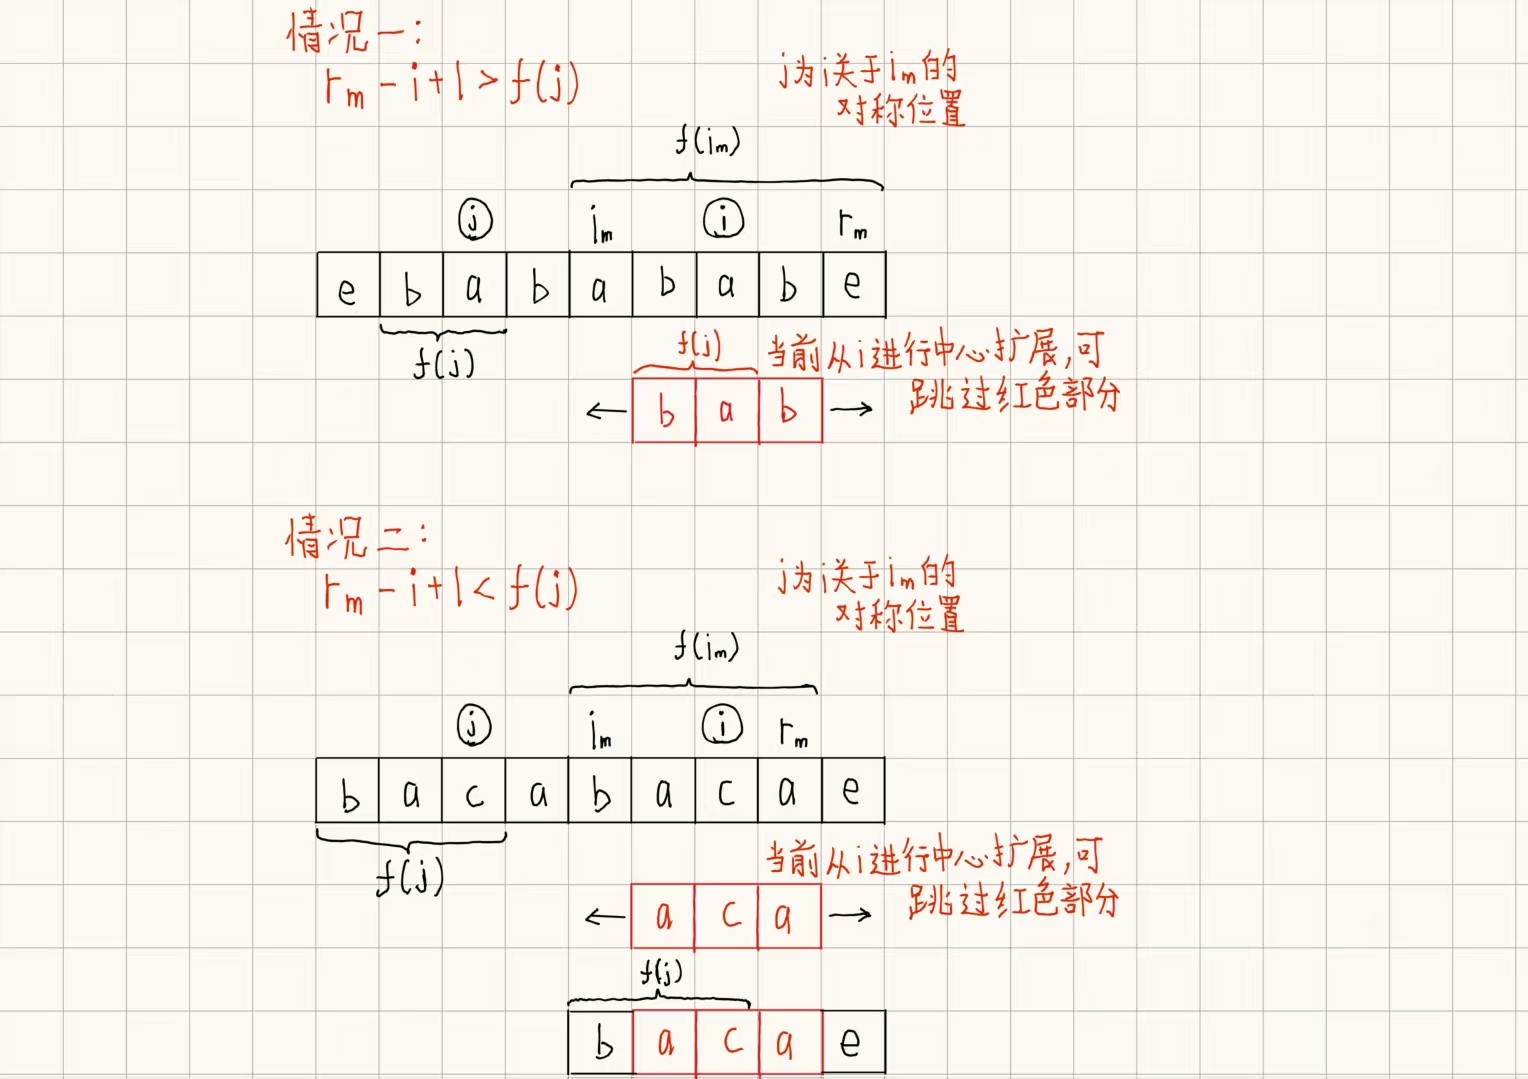 情况一:
rm-i+1>f(j)
j为i关于im的
对称位置
f(im)
j im i rm
e b a b a b a b e
f(j)
f(j)
当前从i进行中心扩展,可
跳过红色部分
← b a b →
情况二:
rm-i+1<f(j)
j为i关于im的
对称位置
f(im)
j im i rm
b a c a b a c a e
f(j)
当前从i进行中心扩展,可
跳过红色部分
← a c a →
f(j)
b a c a e